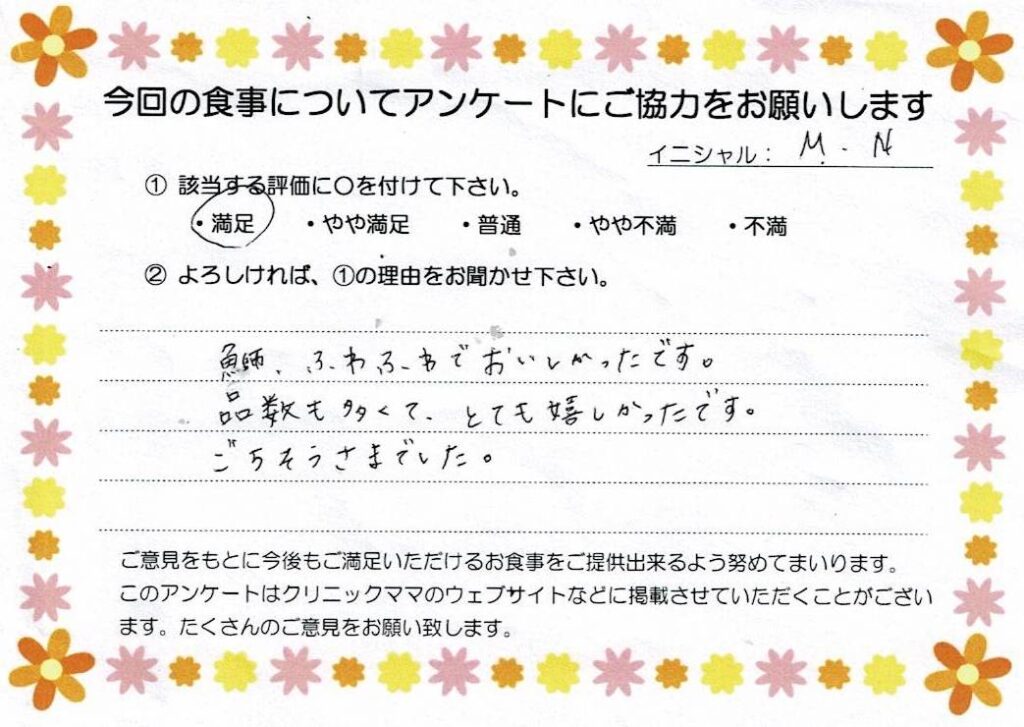 今回の食事についてアンケートにご協力をお願いします
イニシャル： M．N
① 該当する評価に〇を付けて下さい。
・満足 ・やや満足 ・普通 ・やや不満 ・不満
② よろしければ、①の理由をお聞かせ下さい。
鰤、ふわふわでおいしかったです。
品数も多くて、とても嬉しかったです。
ごちそうさまでした。
ご意見をもとに今後もご満足いただけるお食事をご提供出来るよう努めてまいります。
このアンケートはクリニックママのウェブサイトなどに掲載させていただくことがござい
ます。たくさんのご意見をお願い致します。